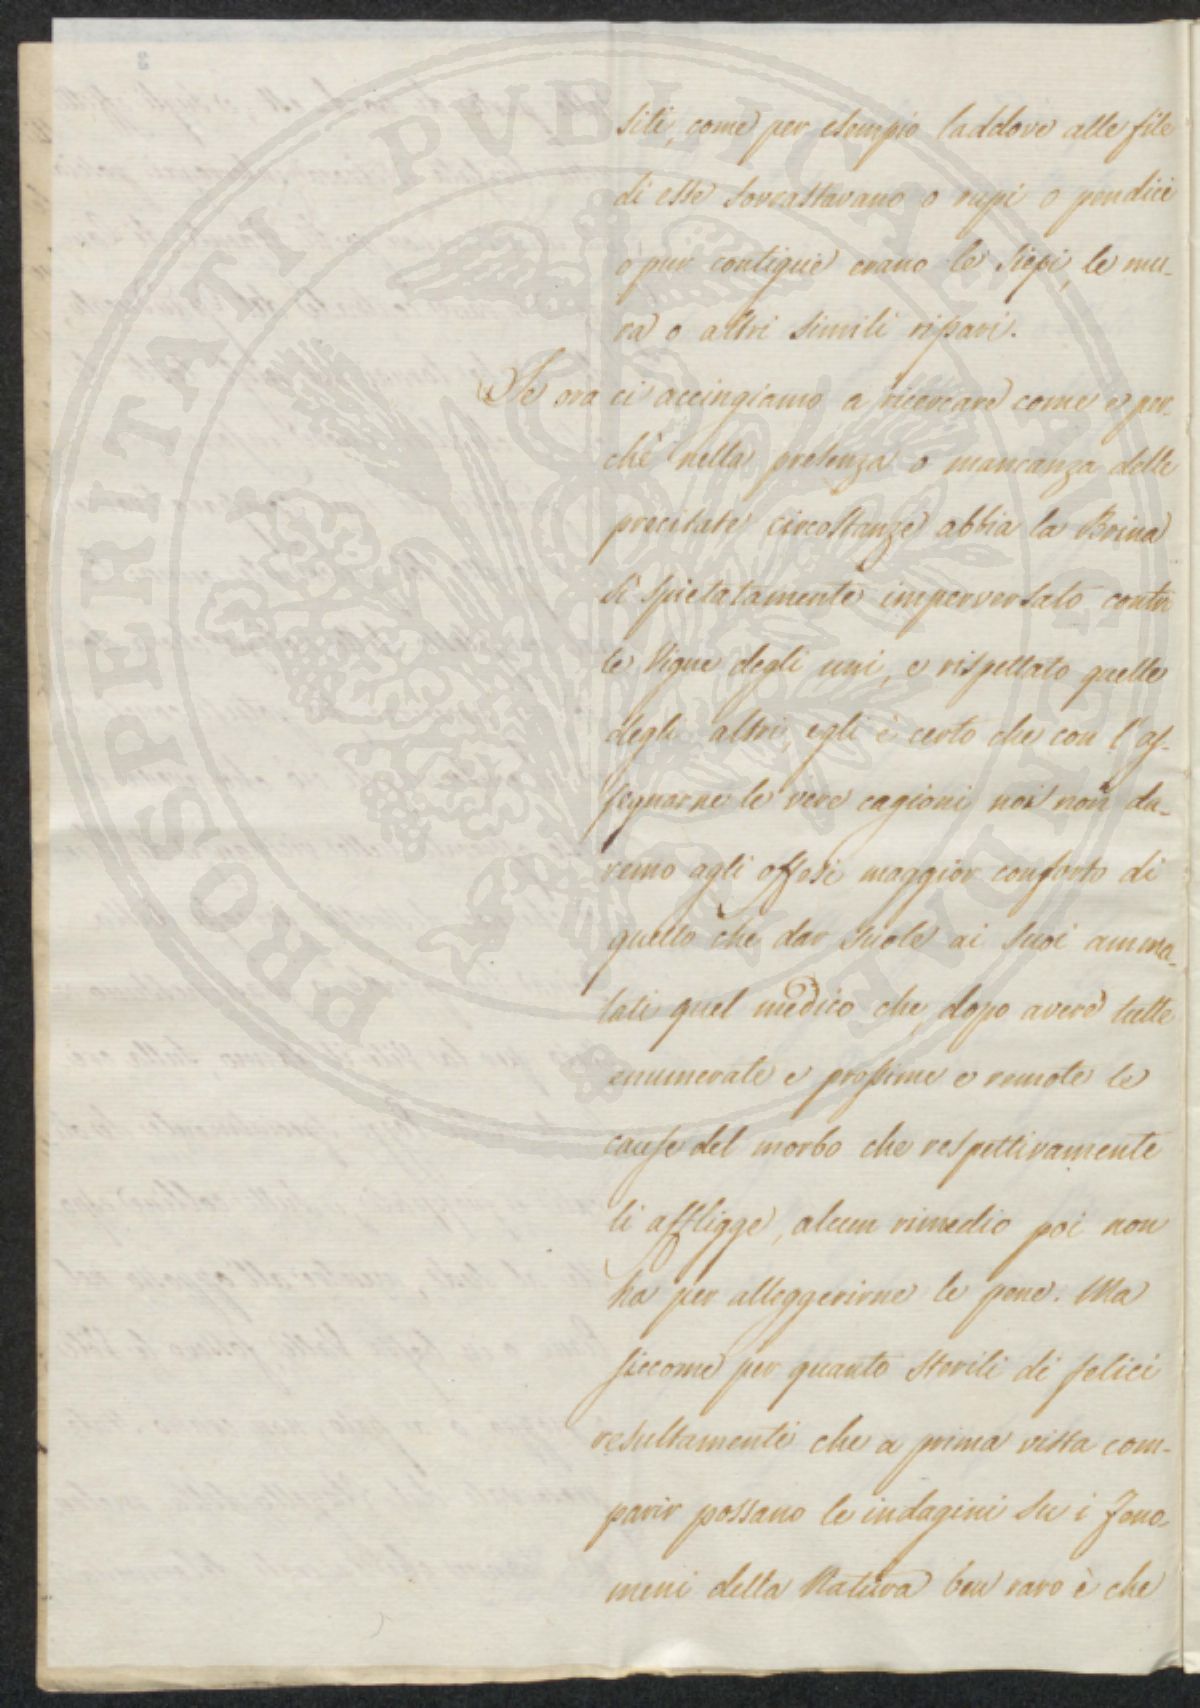 siti, come per esempio laddove alle file
di esse sovrastavano o rupi o pendici
o pur contigue erano le siepi, le mu-
ra o altri simili ripari.
Se ora ci accingiamo a ricercare come e per-
chè nella presenza o mancanza delle
precitate circostanze abbia la Brina
sì spietatamente imperversato contro
le Vigne degli uni, e rispettato quelle
degli altri, egli è certo che con l'as-
segnarne le vere cagioni noi non da-
remo agli offesi maggior conforto di
quello che dar suole ai suoi amma-
lati quel medico che, dopo avere tutte
enumerate e prossime e remote le
cause del morbo che respettivamente
li affligge, alcun rimedio poi non
ha per alleggerirne le pene. Ma
siccome per quanto sterili di felici
resultamenti che a prima vista com-
parir possano le indagini su i Feno-
meni della Natura ben raro è che
PROSPERITATI PUBLICAE AUGENDAE